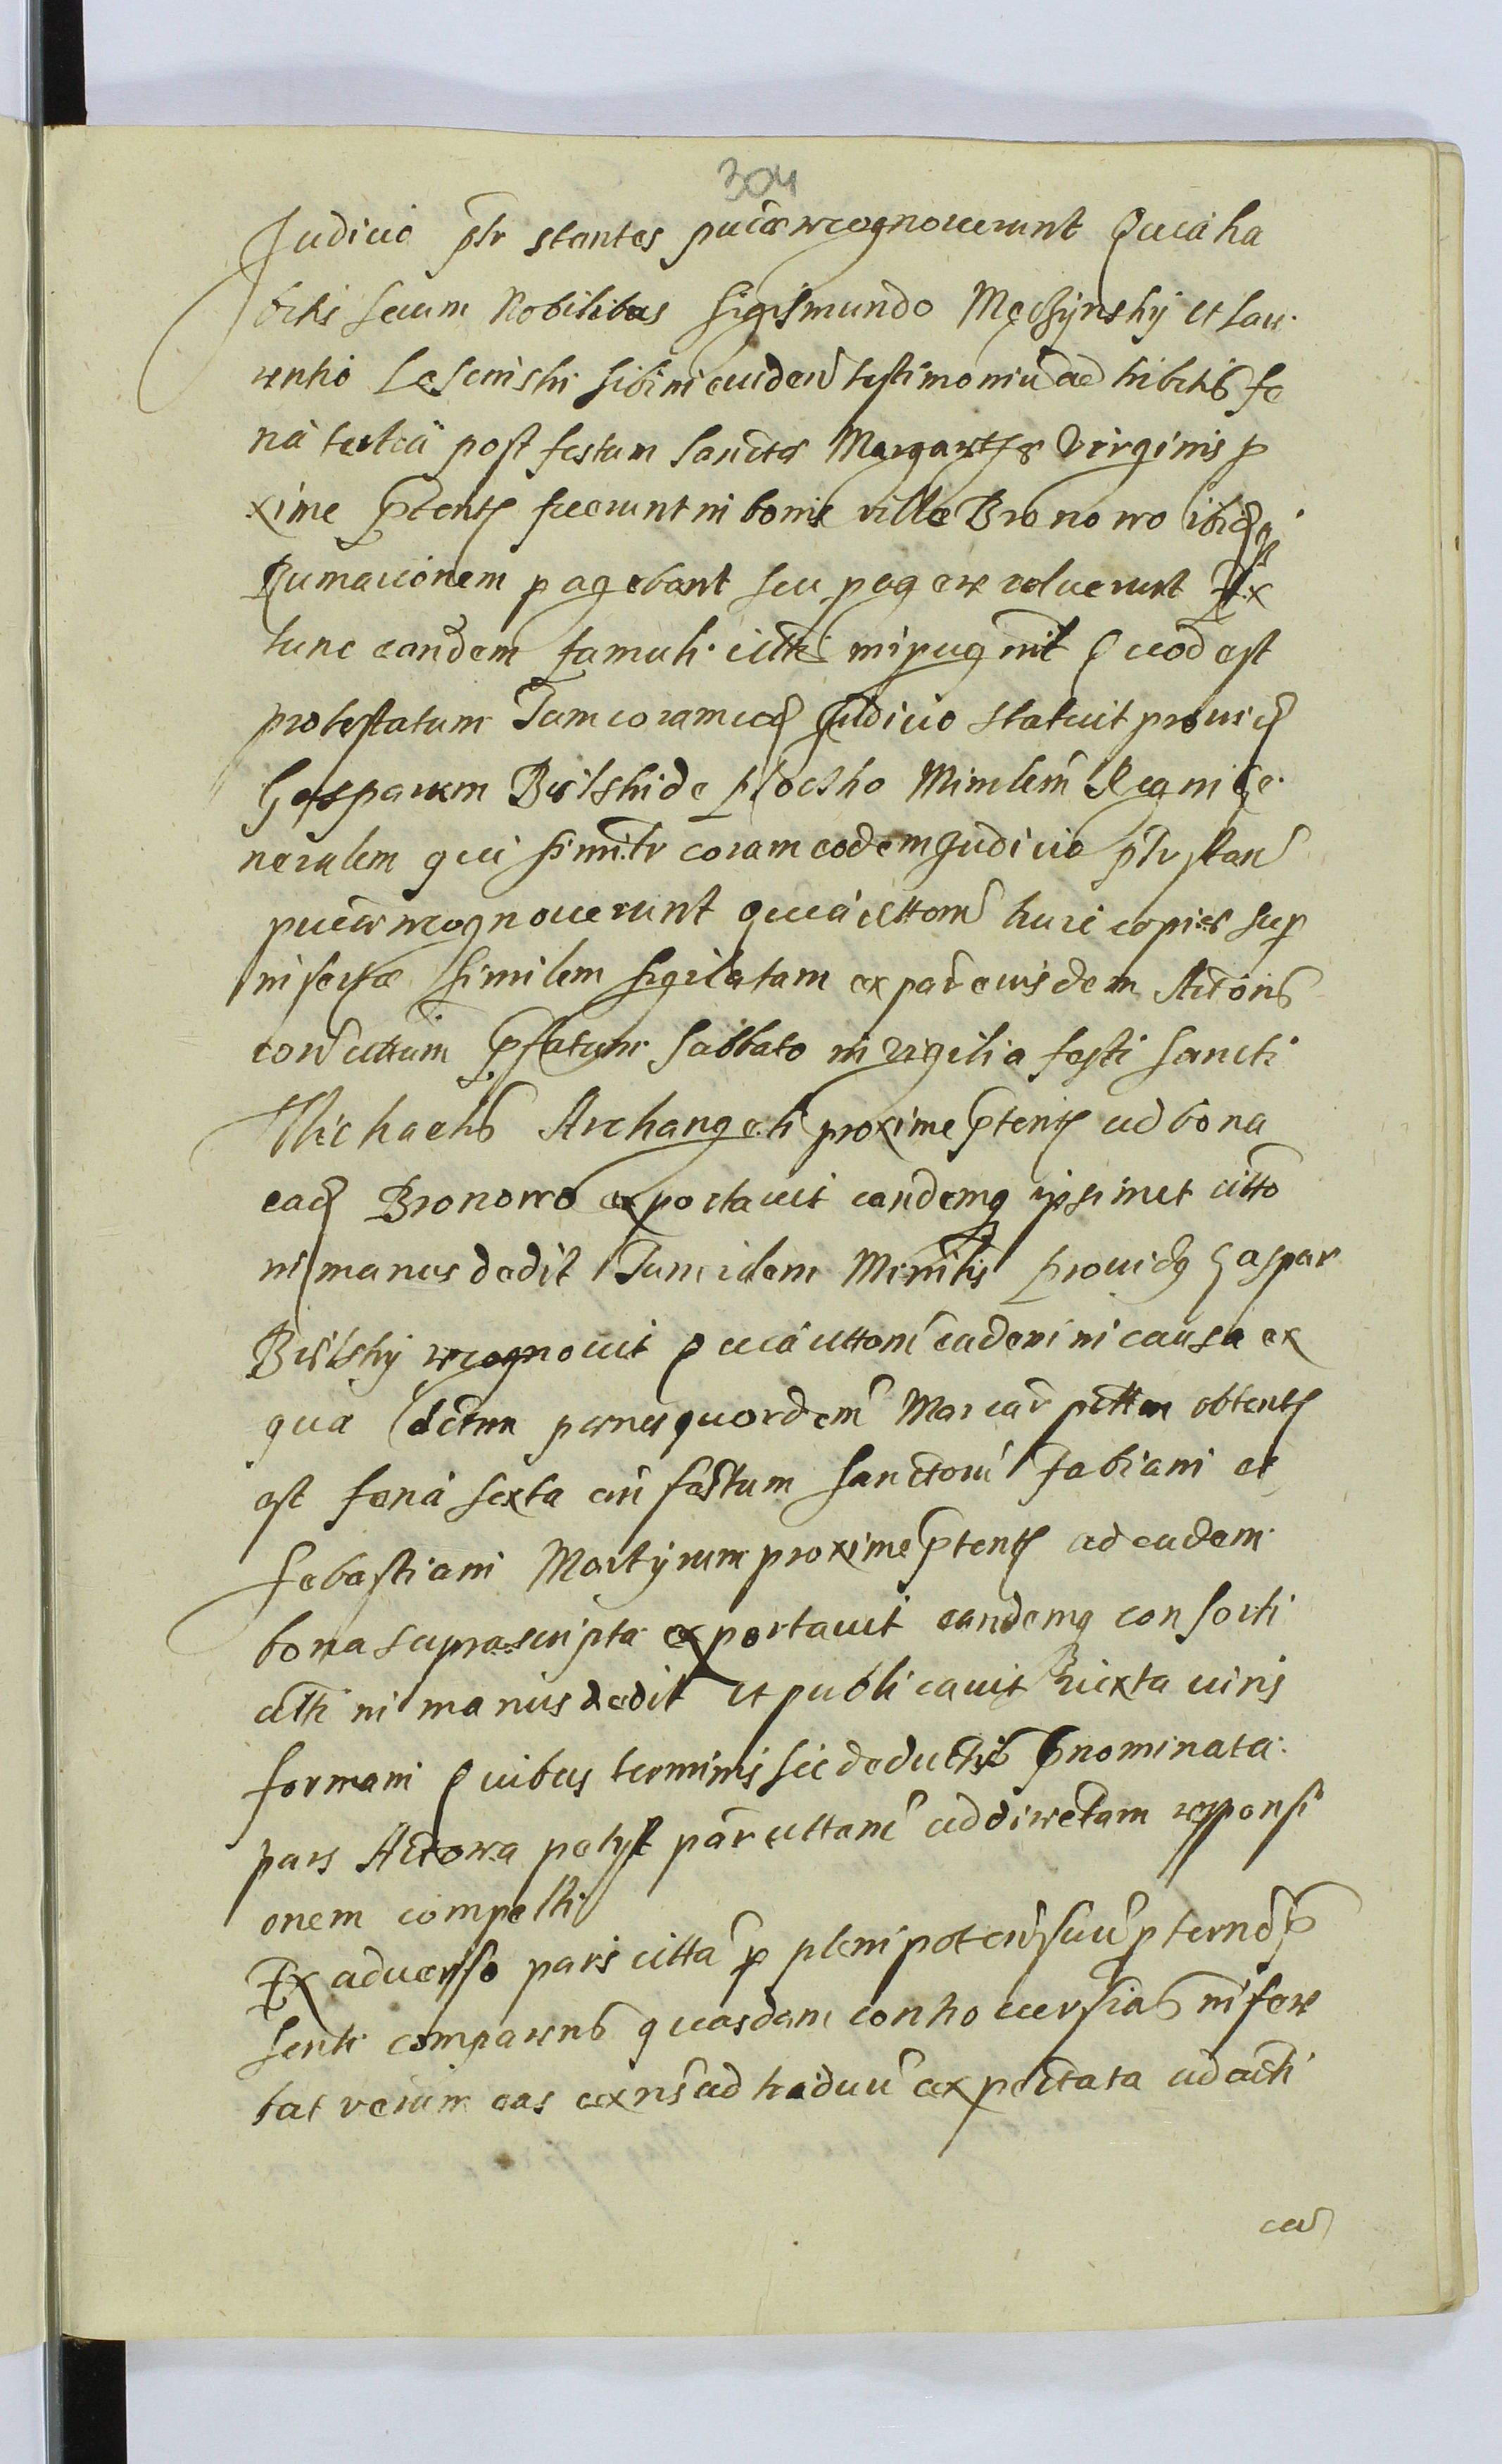 304
Judicio pntr stantes puce recognouerunt Quia ha
bitis secum Nobilibus Sigismundo Męczijnskij et Lau
rentio Lescinski sibi in euiden testimoniu ad hibitis fe
ria tertia post festum Sanctae Margarethae Virginis p
xime pteritj fuerunt in bonis villae Bronowo ibidj qj
Rumationem pagebant seu pagere voluerunt Ex
tunc eandem famuli citti inpugnit Quod est
protestatum Tum coram eodj Judicio statuit prouidj
Gasparem Bielski de Plocsko Ministem Regni Ge
neralem qui similtr coram eodem Judicio pntr stan
puce recognouerunt quia cittonem huic copiae sup
insertae similem sigilatam ex par eiusdem Actoris
con cittum pfatum Sabbato in vigilia festi Sancti
Michaelis Archangeli proxime pteritj ad bona
eadj Bronowo exportauit eandemq ipsimet citto
in manus dedit Tum idem Minstlis prouidq Gaspar
Bielskij recognouit Quia cittonem eadem in causa ex
qua dictum penes quordem Marcar pttem obtentj
est feria sexta an festum Sanctorum Fabiani et
Sebastiani Martijrum proxime pteritj ad eadem
bona suprascripta exportauit eandemq consorti
citti in manus dedit et publicauit iuxta iuris
formam Quibus terminis sic deductis pnominata
pars Actorea petijt par cittam ad directam responsi
onem compelli
Ex aduerso pars citta p plenipoten suu p ternds
senti comparens quasdam controuersias infere
bat verum eas extns ad triduu expectata ad acti
cau